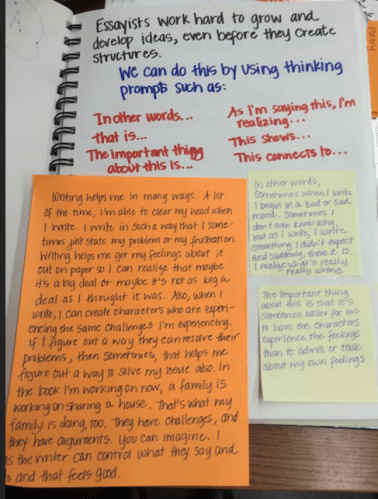 Essayists work hard to grow and
develop ideas, even before they create
structures.
We can do this by using thinking
prompts such as:
In other words...
that is...
The important thing
about this is...
As I'm saying this, I'm
realizing...
This shows...
This connects to...
Writing helps me in many ways. A lot
of the time, I'm able to clear my head when
I write. I write in such a way that I some-
times just state my problem or my frustration.
Writing helps me get my feelings about it
out on paper so I can realize that maybe
it's a big deal or maybe it's not as big a
deal as I thought it was. Also, when I
write, I can create characters who are experi-
encing the same challenges I'm experiencing.
If I figure out a way they can resolve their
problems, then sometimes, that helps me
figure out a way to solve my issue also. In
the book I'm working on now, a family is
working on sharing a house. That's what my
family is doing, too. They have challenges, and
they have arguments. You can imagine. I
as the writer can control what they say and
do and that feels good.
In other words,
Sometimes when I write
I begin in a bad or sad
mood. Sometimes I
don't even know why,
but as I write, I write
something I didn't expect
and suddenly, there it is.
I realize what's really
really wrong.
The important thing
about this is that it's
sometimes easier for me
to have the characters
experience the feelings
than to admit or talk
about my own feelings.